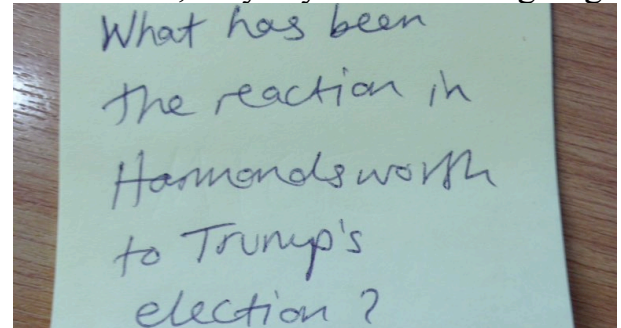 What has been
the reaction in
Harmondsworth
to Trump's
election?